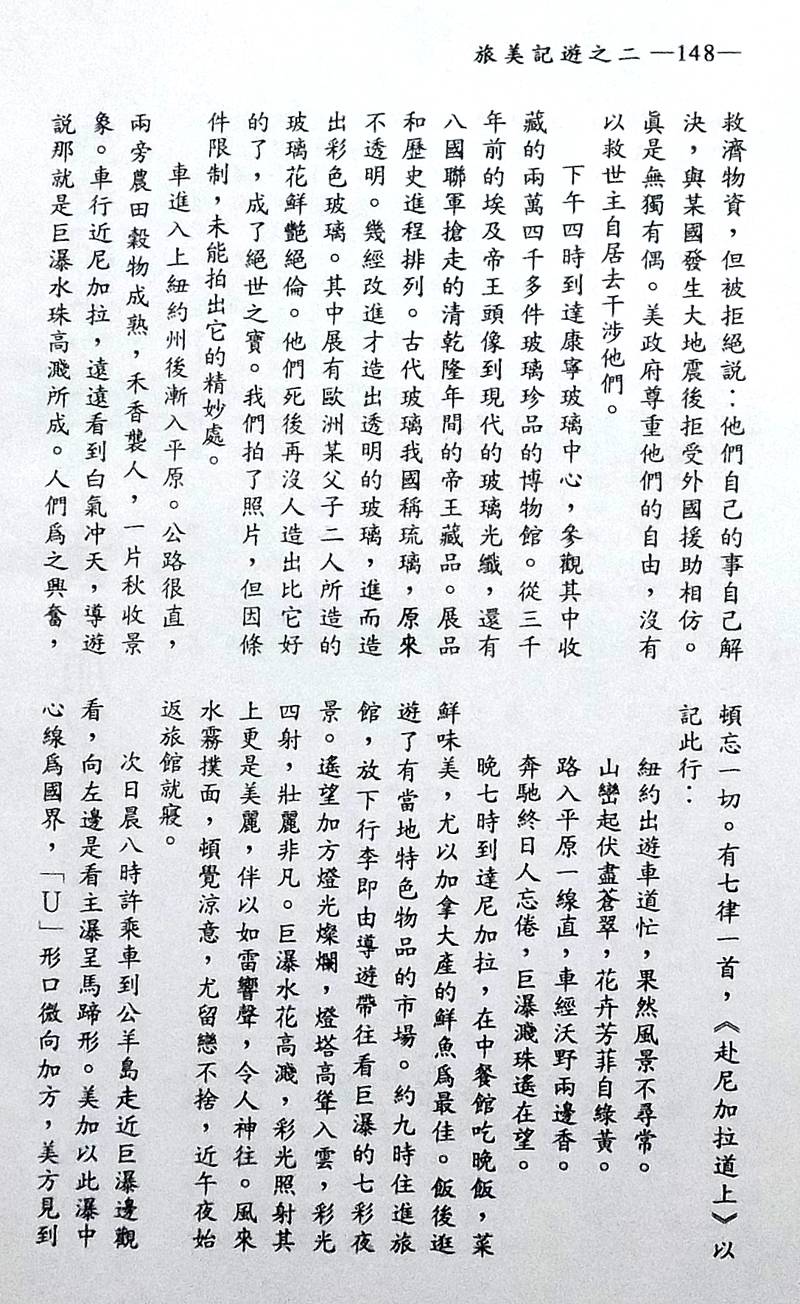 旅美記遊之二 —148—
救濟物資，但被拒絕説：他們自己的事自己解
決，與某國發生大地震後拒受外國援助相仿。
眞是無獨有偶。美政府尊重他們的自由，沒有
以救世主自居去干涉他們。
下午四時到達康寧玻璃中心，參觀其中收
藏的兩萬四千多件玻璃珍品的博物館。從三千
年前的埃及帝王頭像到現代的玻璃光纖，還有
八國聯軍搶走的清乾隆年間的帝王藏品。展品
和歷史進程排列。古代玻璃我國稱琉璃，原來
不透明。幾經改進才造出透明的玻璃，進而造
出彩色玻璃。其中展有歐洲某父子二人所造的
玻璃花鮮艷絕倫。他們死後再沒人造出比它好
的了，成了絕世之寶。我們拍了照片，但因條
件限制，未能拍出它的精妙處。
車進入上紐約州後漸入平原。公路很直，
兩旁農田穀物成熟，禾香襲人，一片秋收景
象。車行近尼加拉，遠遠看到白氣冲天，導遊
説那就是巨瀑水珠高濺所成。人們爲之興奮，
頓忘一切。有七律一首，《赴尼加拉道上》以
記此行：
紐約出遊車道忙，果然風景不尋常。
山巒起伏盡蒼翠，花卉芳菲自綠黃。
路入平原一線直，車經沃野兩邊香。
奔馳終日人忘倦，巨瀑濺珠遙在望。
晚七時到達尼加拉，在中餐館吃晚飯，菜
鮮味美，尤以加拿大產的鮮魚爲最佳。飯後逛
遊了有當地特色物品的市場。約九時住進旅
館，放下行李即由導遊帶往看巨瀑的七彩夜
景。遙望加方燈光燦爛，燈塔高聳入雲，彩光
四射，壯麗非凡。巨瀑水花高濺，彩光照射其
上更是美麗，伴以如雷響聲，令人神往。風來
水霧撲面，頓覺涼意，尤留戀不捨，近午夜始
返旅館就寢。
次日晨八時許乘車到公羊島走近巨瀑邊觀
看，向左邊是看主瀑呈馬蹄形。美加以此瀑中
心線爲國界，「U」形口微向加方，美方見到